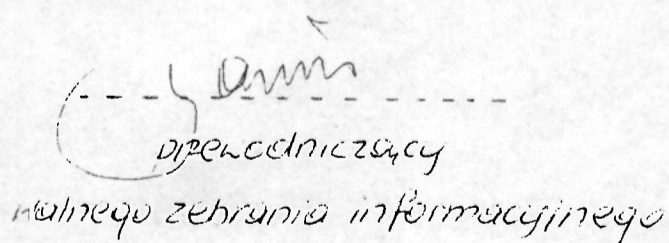 przewodniczący
walnego zebrania informacyjnego